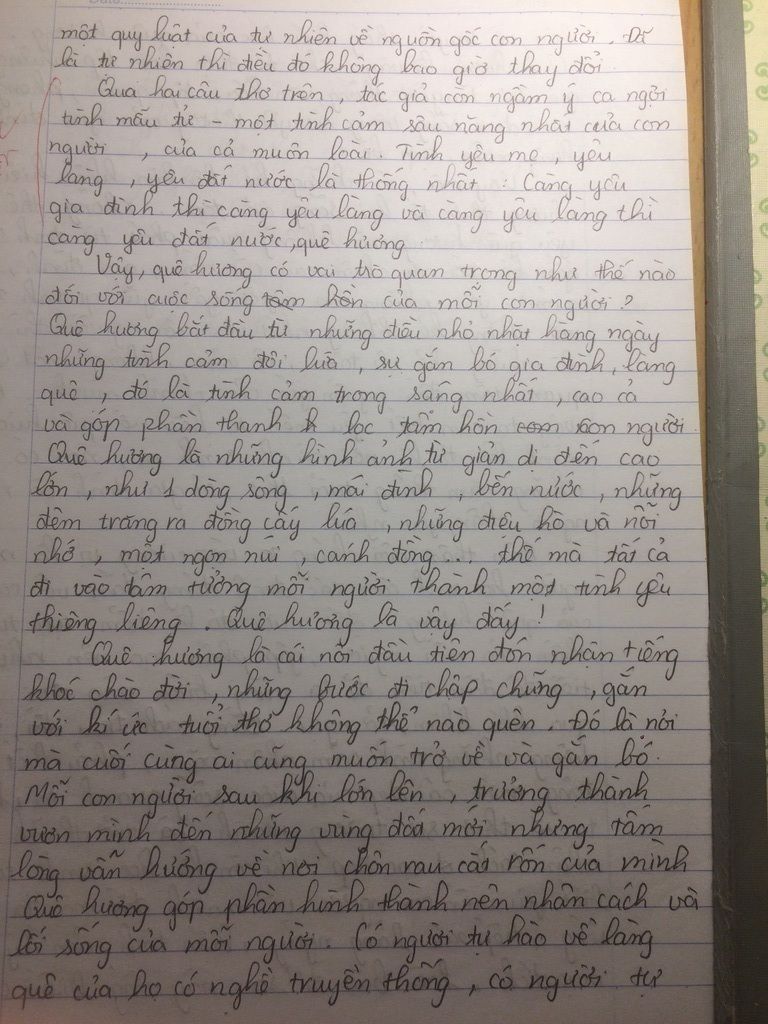 một quy luật của tự nhiên về nguồn gốc con người. Đã
là tự nhiên thì điều đó không bao giờ thay đổi
Qua hai câu thơ trên, tác giả còn ngầm ý ca ngợi
tình mẫu tử - một tình cảm sâu nặng nhất của con
người, của cả muôn loài. Tình yêu mẹ, yêu
làng, yêu đất nước là thống nhất: Càng yêu
gia đình thì càng yêu làng và càng yêu làng thì
càng yêu đất nước, quê hương
Vậy, quê hương có vai trò quan trọng như thế nào
đối với cuộc sống tâm hồn của mỗi con người?
Quê hương bắt đầu từ những điều nhỏ nhặt hàng ngày
những tình cảm đôi lứa, sự gắn bó gia đình, làng
quê, đó là tình cảm trong sáng nhất, cao cả
và góp phần thanh lọc tâm hồn con người.
Quê hương là những hình ảnh từ giản dị đến cao
lớn, như 1 dòng sông, mái đình, bến nước, những
đêm trăng ra đồng cấy lúa, những điệu hò và nỗi
nhớ, một ngọn núi, cánh đồng... thế mà tất cả
đi vào tâm tưởng mỗi người thành một tình yêu
thiêng liêng. Quê hương là vậy đấy!
Quê hương là cái nôi đầu tiên đón nhận tiếng
khóc chào đời, những bước đi chập chững, gắn
với kí ức tuổi thơ không thể nào quên. Đó là nơi
mà cuối cùng ai cũng muốn trở về và gắn bó.
Mỗi con người sau khi lớn lên, trưởng thành
vươn mình đến những vùng đất mới nhưng tấm
lòng vẫn hướng về nơi chôn rau cắt rốn của mình
Quê hương góp phần hình thành nên nhân cách và
lối sống của mỗi người. Có người tự hào về làng
quê của họ có nghề truyền thống, có người tự